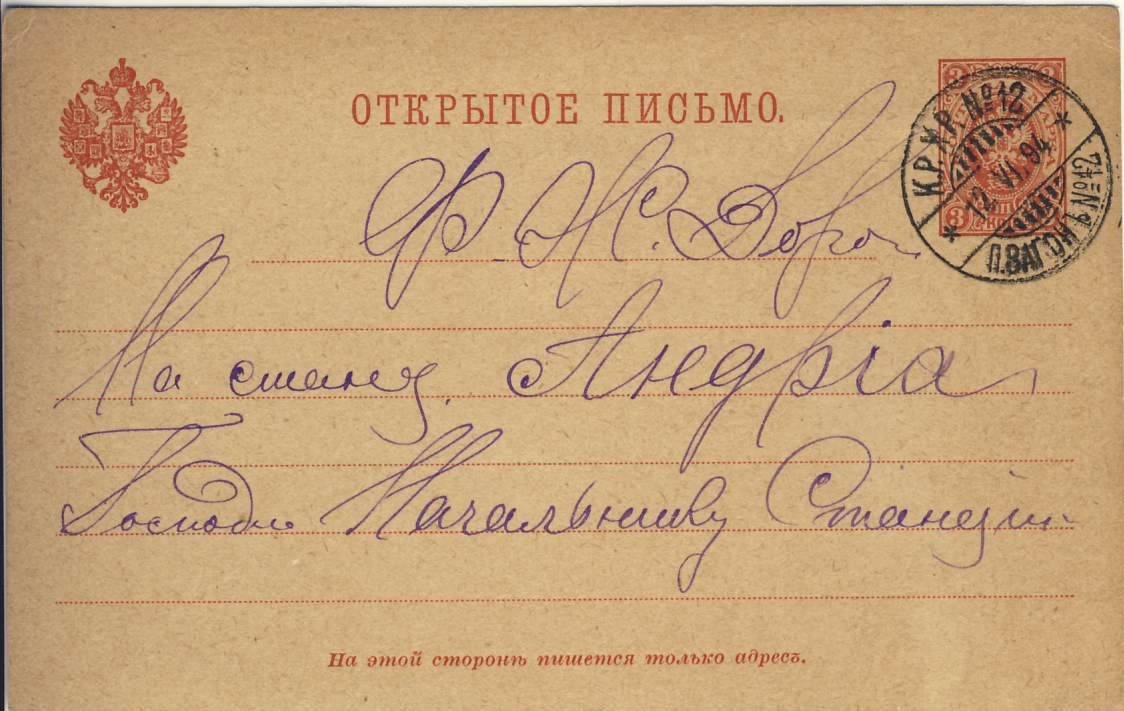 ОТКРЫТОЕ ПИСЬМО.
К.Р.К.Р. №12
12 VI. 94
П. ВАГОНЪ №12
Ф. Ж. Дорог
На станц. Андрія
Господи Начальнику Станціи
На этой сторонѣ пишется только адресъ.